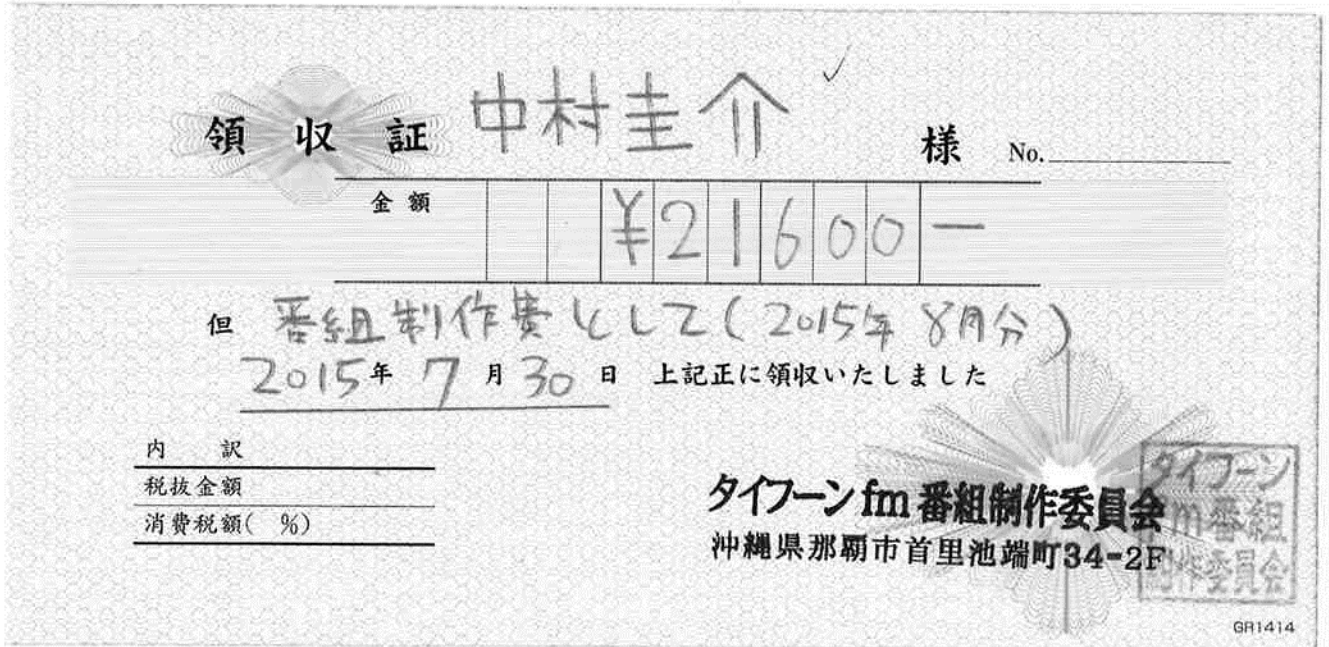 領収証 中村圭介 様 No.
金額 ¥21600-
但 番組制作費として(2015年8月分)
2015年7月30日 上記正に領収いたしました
内訳
税抜金額
消費税額( %)
タイフーンfm番組制作委員会
沖縄県那覇市首里池端町34-2F
タイフーン
fm番組
制作委員会
GR1414